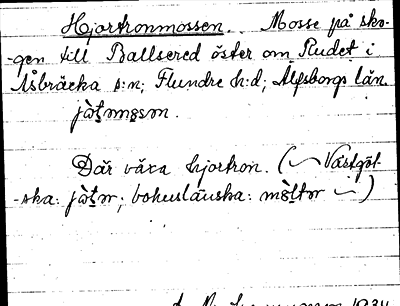 Hjortronmossen. Mosse på sko-
-gen till Ballsered öster om Rudet i
Åsbräcka s:n; Flundre h:d; Älfsborgs län.
jòt̲nmosm.
Där växa hjortron. (~ Västgöt-
-ska: jòt̲nr; bohuslänska: mòltnr ~)
1934